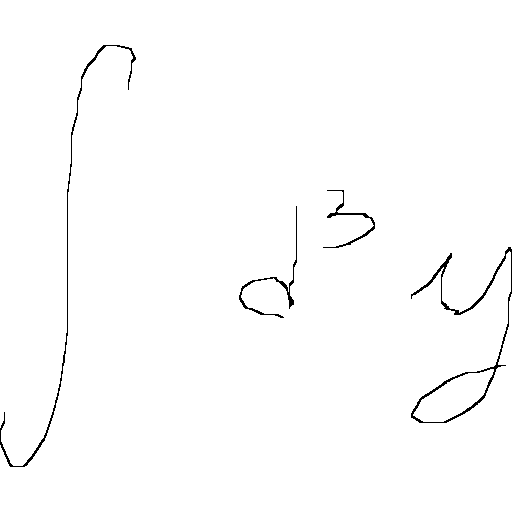 ∫ d³y